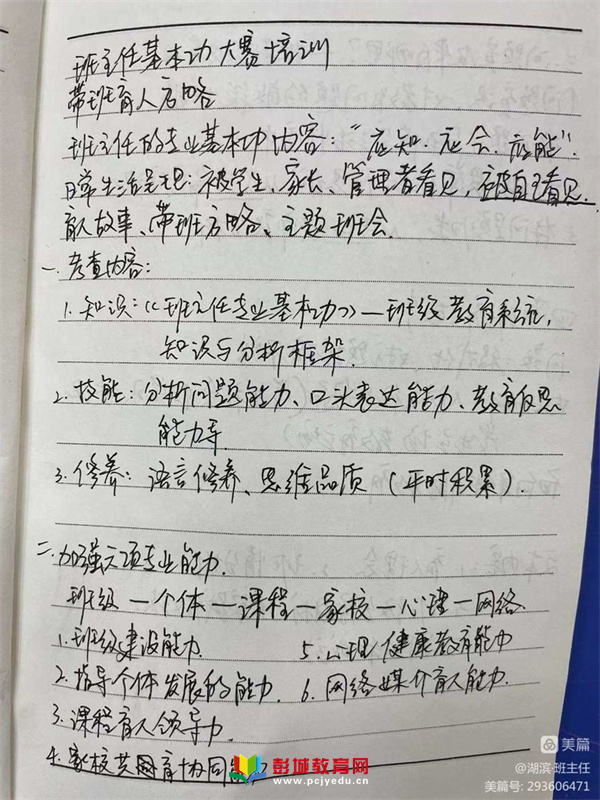 班主任基本功大赛培训
带班育人方略
班主任的专业基本功内容：“应知.应会.应能”.
日常生活呈现：被学生、家长、管理者看见，被自己看见.
育人故事、带班方略、主题班会.
一.考查内容：
1.知识：《班主任专业基本功》—班级教育系统，
知识与分析框架.
2.技能：分析问题能力、口头表达能力、教育反思
能力等.
3.修养：语言修养、思维品质（平时积累）.
二.加强六项专业能力.
班级—个体—课程—家校—心理—网络
1.班级建设能力. 5.心理健康教育能力
2.指导个体发展的能力. 6.网络媒介育人能力.
3.课程育人领导力.
4.家校共育协同
彭城教育网
www.pcjyedu.cn
美篇
@湖滨-班主任
美篇号：293606471